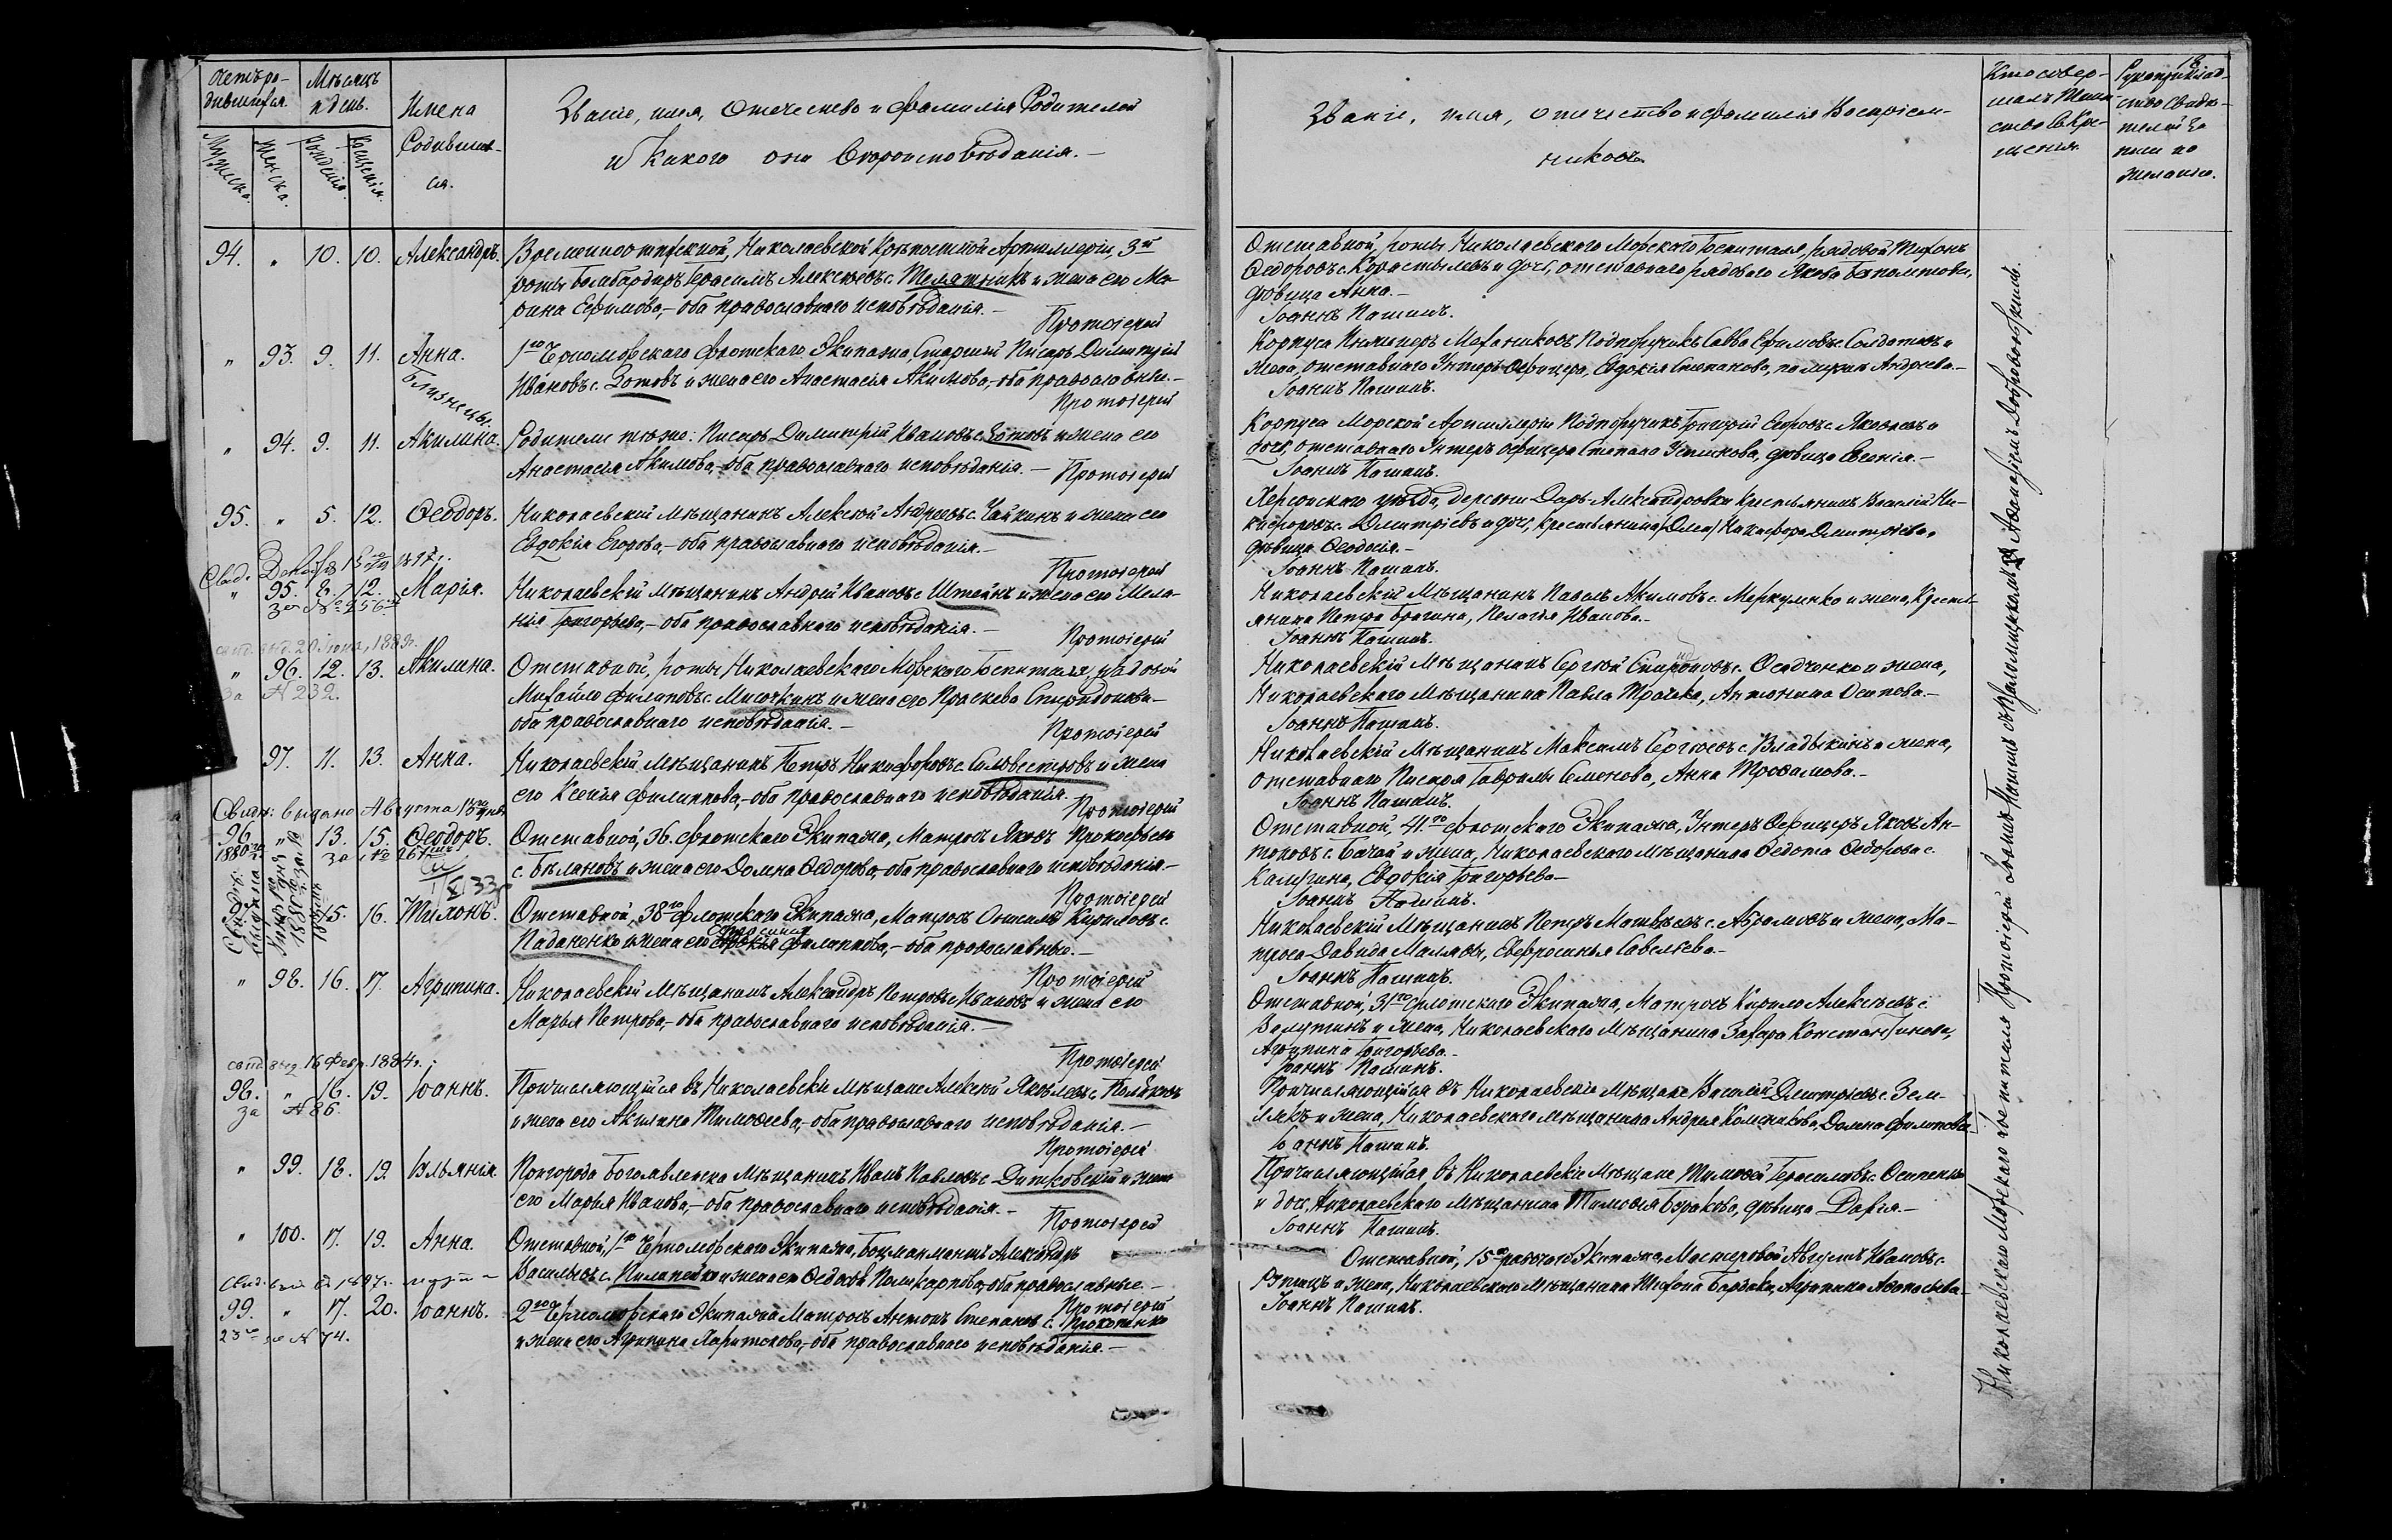 Счетъ ро-
дившихся.
Мѣсяцъ
и день.
Мужеска.
Женска.
Рожденія.
Крещенія.
Имена
Родивших-
ся.
Званіе, имя, отечество и фамилія Родителей
и Какого они Вѣроисповѣданія.—
94. " 10. 10. Александръ.
Николаевской Крѣпостной Артиллеріи, 3й
роты бомбардиръ Герасимъ Алексѣевъ с. Телятникъ и жена его Ма-
рина Ефимова,— оба православнаго исповѣданія.—
Протоіерей
" 93. 9. 11. Анна.
1го Черноморскаго флотскаго Экипажа Старшій Писарь Димитрій
Ивановъ с. Зотовъ и жена его Анастасія Акимова,— оба православн.—
Близнецы.
Протоіерей
" 94. 9. 11. Акилина.
Родители тѣже: Писарь Димитрій Ивановъ с. Зотовъ и жена его
Анастасія Акимова,— оба православнаго исповѣданія.—
Протоіерей
95. " 5. 12. Ѳеодоръ.
Николаевскій мѣщанинъ Алексѣй Андреевъ с. Чайкинъ и жена его
Евдокія Егорова,— оба православнаго исповѣданія.—
Протоіерей
" 95. 8. 12. Марія.
Николаевскій мѣщанинъ Андрей Ивановъ с. Штейнъ и жена его Мела-
нія Григорьева,— оба православнаго исповѣданія.—
Протоіерей
свид. выд. 20 Іюня, 1883г.
" 96. 12. 13. Акилина.
за № 232.
Отставной, роты Николаевскаго Морскаго Госпиталя, рядовой
Михайло Филиповъ с. Мисочкинъ и жена его Праскева Спиридонова—
оба православнаго исповѣданія.—
Протоіерей
97. 11. 13. Анна.
Николаевскій мѣщанинъ Петръ Никифоровъ с. Силовестровъ и жена
его Ксенія Филиппова,— оба православнаго исповѣданія.
Протоіерей
Свидѣ: выдано Августа 13го дня
96. " 13. 15. Ѳеодоръ.
1880го за №
Отставной, 36. флотскаго Экипажа, Матросъ Яковъ Прокофьевъ
с. Бѣлановъ и жена его Домна Ѳедорова,— оба православнаго исповѣданія—
Протоіерей
97. " 15. 16. Тихонъ.
Отставной, 38го флотскаго Экипажа, Матросъ Кириловъ с.
Паданенко и жена его Филиппова,— оба православные.—
Протоіерей
" 98. 16. 17. Агрипина.
Николаевскій мѣщанинъ Александръ Петровъ Ивановъ и жена его
Марья Петрова,— оба православнаго исповѣданія.—
Протоіерей
свид. выд. 16 Февр. 1884г.
98. " 16. 19. Іоаннъ.
за № 86.
Причисляющійся въ Николаевскіе мѣщане Алексѣй Яковлевъ с.
и жена его Акилина Тимоѳеева,— оба православнаго исповѣданія.—
Протоіерей
" 99. 18. 19. Іульянія.
Пригорода Богоявленска мѣщанинъ Иванъ Павловъ с. Дитковскій и жена
его Марья Иванова,— оба православнаго исповѣданія.—
Протоіерей
" 100. 17. 19. Анна.
Отставной, 1го Черноморскаго Экипажа, Боцманматъ Александръ
Васильевъ с. Пилипейко и жена его Поликарпова, оба православные.—
Протоіерей
99. " 17. 20. Іоаннъ.
за № 74.
2го Черноморскаго Экипажа Матросъ Антонъ Степановъ с. Прокопенко
и жена его Агрипина Харитонова,— оба православнаго исповѣданія.—
Званіе, имя, отечество и фамилія Воспріем-
никовъ.
Кто совер-
шалъ Таин-
ство Кре-
щенія.
Рукоприклад-
ство Свидѣ-
телей за
писи по
желанію.
Отставной, роты Николаевскаго Морскаго Госпиталя, рядовой Тихонъ
Ѳедоровъ с. Коростылевъ и дочь, отставнаго рядоваго Якова
дѣвица Анна.—
Іоаннъ Пашинъ.
Корпуса Инженеръ Механиковъ Подпоручикъ Савва Ефимовъ с. Солдатовъ и
жена, отставнаго Унтеръ Офицера, Евдокія Степанова, по мужѣ Андреева.—
Іоаннъ Пашинъ.
Корпуса Морской Артиллеріи Подпоручикъ Григорій с. Яковлевъ и
дочь, отставнаго Унтеръ офицера Степана Устикова, дѣвица Евгенія.—
Іоаннъ Пашинъ.
Херсонскаго уѣзда, деревни Даръ-Александровки крестьянинъ Василій Ни-
кифоровъ с. Дмитріевъ и дочь, крестьянина Никифора Дмитріева,
дѣвица Ѳеодосія.—
Іоаннъ Пашинъ.
Николаевскій Мѣщанинъ Павелъ Акимовъ с. Меркуленко и жена, Кресть-
янина Петра Брагина, Пелагія Иванова.—
Іоаннъ Пашинъ.
Николаевскій Мѣщанинъ Сергѣй с. Осадченко и жена,
Николаевскаго Мѣщанина Павла Трачева, Антонина Осипова.—
Іоаннъ Пашинъ.
Николаевскій Мѣщанинъ Максимъ Сергѣевъ с. Владыкинъ и жена,
отставнаго Писаря Гаврилы Семенова, Анна Трофимова.—
Іоаннъ Пашинъ.
Отставной, 41.го флотскаго Экипажа, Унтеръ Офицеръ Яковъ Ан-
тоновъ с. Бачай и жена, Николаевскаго мѣщанина Ѳедота Ѳедорова с.
Калугина, Евдокія Григорьева—
Іоаннъ Пашинъ.
Николаевскій Мѣщанинъ Петръ Матвѣевъ с. Абрамовъ и жена, Ма-
троса Давида Маляева, Евфросинья Савельева.—
Іоаннъ Пашинъ.
Отставной, 31го флотскаго Экипажа, Матросъ Кирило Алексѣевъ с.
Валутинъ и жена, Николаевскаго Мѣщанина Захара Константинова,
Агрипина Григорьева.—
Іоаннъ Пашинъ.
Причисляющійся въ Николаевскіе мѣщане Василій Дмитріевъ с. Зем-
лякъ и жена, Николаевскаго мѣщанина Андрея Колесникова, Домна Филипова
Іоаннъ Пашинъ.
Причисляющійся въ Николаевскіе мѣщане Тимоѳей Герасимовъ с. Осипенко
и дочь, Николаевскаго мѣщанина Тимоѳея Бурякова, дѣвица Дарія.—
Іоаннъ Пашинъ.
Отставной, 15го рабочаго Экипажа, Мастеровой Августъ Ивановъ с.
и жена, Николаевскаго Мѣщанина Агрипина Аѳанасьева.
Іоаннъ Пашинъ.
Николаевскаго Морскаго госпиталя Протоіерей Іоаннъ Пашинъ съ Аѳанасіемъ Добровольскимъ.